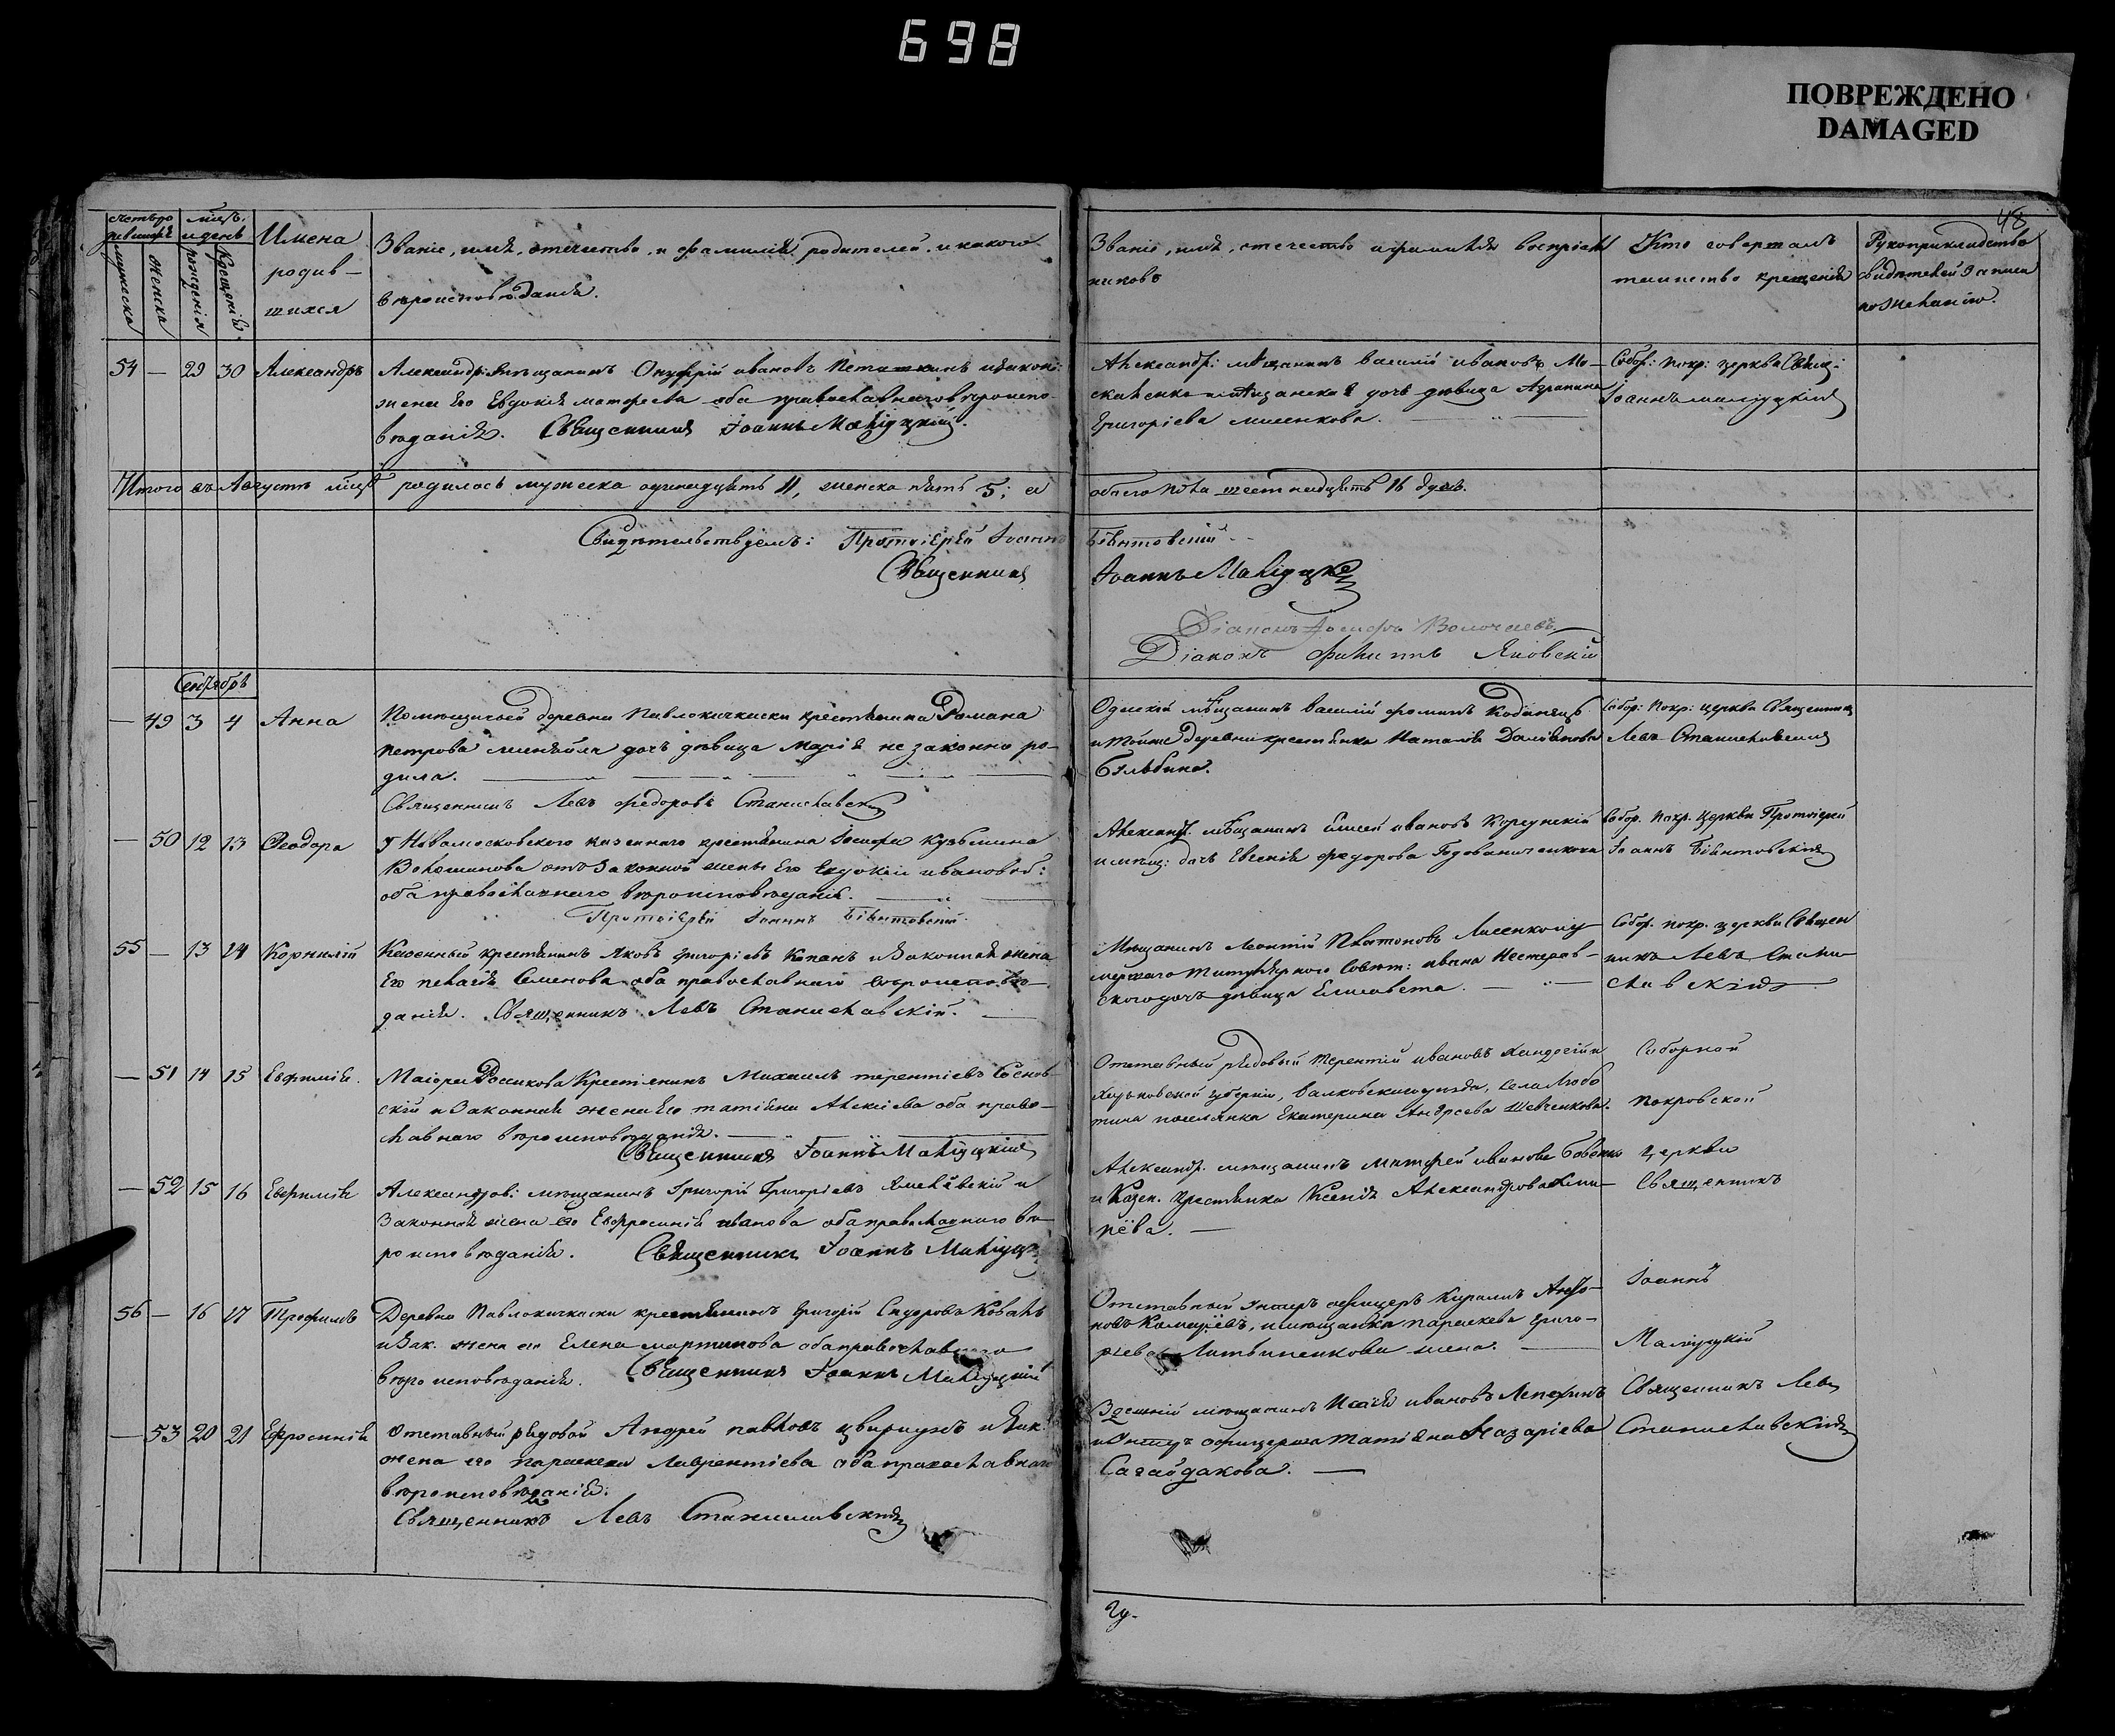 698
ПОВРЕЖДЕНО
DAMAGED
48
Счетъ ро
дившихся
мужеска
женска
мѣся.
и день
рожденія
Крещенія
Имена
родив–
шихся
Званіе, имя, отечество, и фамилія родителей, и какого
вѣроисповѣданія.
Званіе, имя, отечество и фамилія воспріем
никовъ
Кто совершалъ
таинство крещенія
Рукоприкладство
свидѣтелей записи
по желанію.
54 — 29 30 Александръ
Александр: мѣщанинъ Онуфрій Ивановъ и законн:
жена его Евдокія Матфеева оба православнаго вѣроиспо–
вѣданія. Священникъ Іоаннъ Малѣуцкій.
Александр: мѣщанинъ Василій Ивановъ Мо–
скаленко и мѣщанская дочь дѣвица Агрипина
Григоріева Мисенкова.
Собор: Покр: церкви Свящ:
Іоаннъ Малѣуцкій
Итого въ Августѣ мѣся: родилось мужеска одинадцать 11, женска пять 5; а
обоего пола шестнадцать 16 душъ.
Свидѣтельствуемъ: Протоіерей Іоаннъ
Священникъ
Іоаннъ Малѣуцкій
Діаконъ Іосифъ
Діаконъ Филиппъ Яновскій
Сентябрь
— 49 3 4 Анна
Помѣщичьей деревни Павлокичкаски крестянина Романа
Петрова дочь дѣвица Марія не законно ро–
дила.
Священникъ Левъ Федоровъ Станиславскій
Одескій мѣщанинъ Василій Фоминъ
и тойже деревни крестянка Наталія
Собор: Покр: церкви Священникъ
Левъ Станиславскій
— 50 12 13 Ѳеодора
У Новомосковского казеннаго крестянина Іосифа Кузьмина
Волошинова отъ законной жены его Евдокіи Ивановой:
оба православнаго вѣроисповѣданія.
Протоіерей Іоаннъ
Александр. мѣщанинъ Елисей Ивановъ
и мѣщ: дочь Евгенія Федорова
Собор. Покр. Церкви Протоіерей
Іоаннъ
55 — 13 14 Корнилій
Казенный крестянинъ Яковъ Григоріевъ Капанъ и законная жена
его Пелагія Семенова оба православнаго вѣроисповѣ–
данія. Священникъ Левъ Станиславскій.
Мѣщанинъ Леонтій Платоновъ Лисенко и у–
мершаго Титулярного Совѣт: Ивана Нестеров–
ского дочь дѣвица Елисавета.
Собор. Покр. церкви Священ
никъ Левъ Стани
славскій
— 51 14 15 Евфимія.
Маіора Россикова Крестянинъ Михаилъ Терентіевъ Соснов–
скій и законная жена его Татіяна Алексіева оба право–
славнаго вѣроисповѣданія.
Священникъ Іоаннъ Малѣуцкій
Отставный рядовый Терентій Ивановъ и
Харьковской губерніи, Валковского уѣзда, села Любо
тина поселянка Екатерина Андреева Шевченкова.
Соборной
Покровской
— 52 15 16 Евфимія
Александров: мѣщанинъ Григорій Григоріевъ и
законная жена его Евфросинія Иванова оба православнаго вѣ–
роисповѣданія. Священникъ Іоаннъ Малѣуцкій
Александр. мѣщанинъ Матфей Ивановъ Бабенко
и Казен. крестянка Ксенія Александрова
Церкви
Священникъ
56 — 16 17 Трофимъ
Деревни Павлокичкаски крестянинъ Григорій Сидоровъ Коваль
и зак. жена его Елена Мартинова оба православнаго
вѣроисповѣданія. Священникъ Іоаннъ Малѣуцкій
Отставный унтеръ офицеръ Кирилъ Анто–
новъ и мѣщанка Параскева Григо–
ріева Литвиненкова жена.
Іоаннъ
Малѣуцкій
— 53 20 21 Ефросинія
Отставный рядовой Андрей Павловъ Цвиркунъ и зак.
жена его Параскева Лаврентіева оба православнаго
вѣроисповѣданія.
Священникъ Левъ Станиславскій
Здешній мѣщанинъ Исаія Ивановъ Лепехинъ
и Унтеръ офицерша Татіяна Назаріева
Сагайдакова.
Священникъ Левъ
Станиславскій